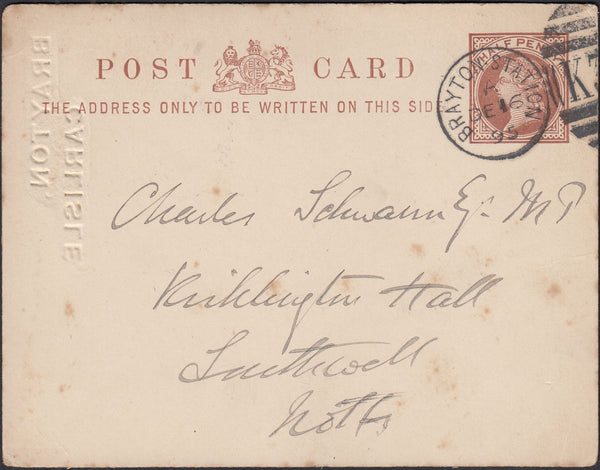 POST CARD
THE ADDRESS ONLY TO BE WRITTEN ON THIS SIDE
HALF PENNY
BRAYTON STATION
A
DE 16
95
K
BRAYTON,
CARLISLE
Charles Schwann Esq. MP
Kirklington Hall
Southwell
Notts